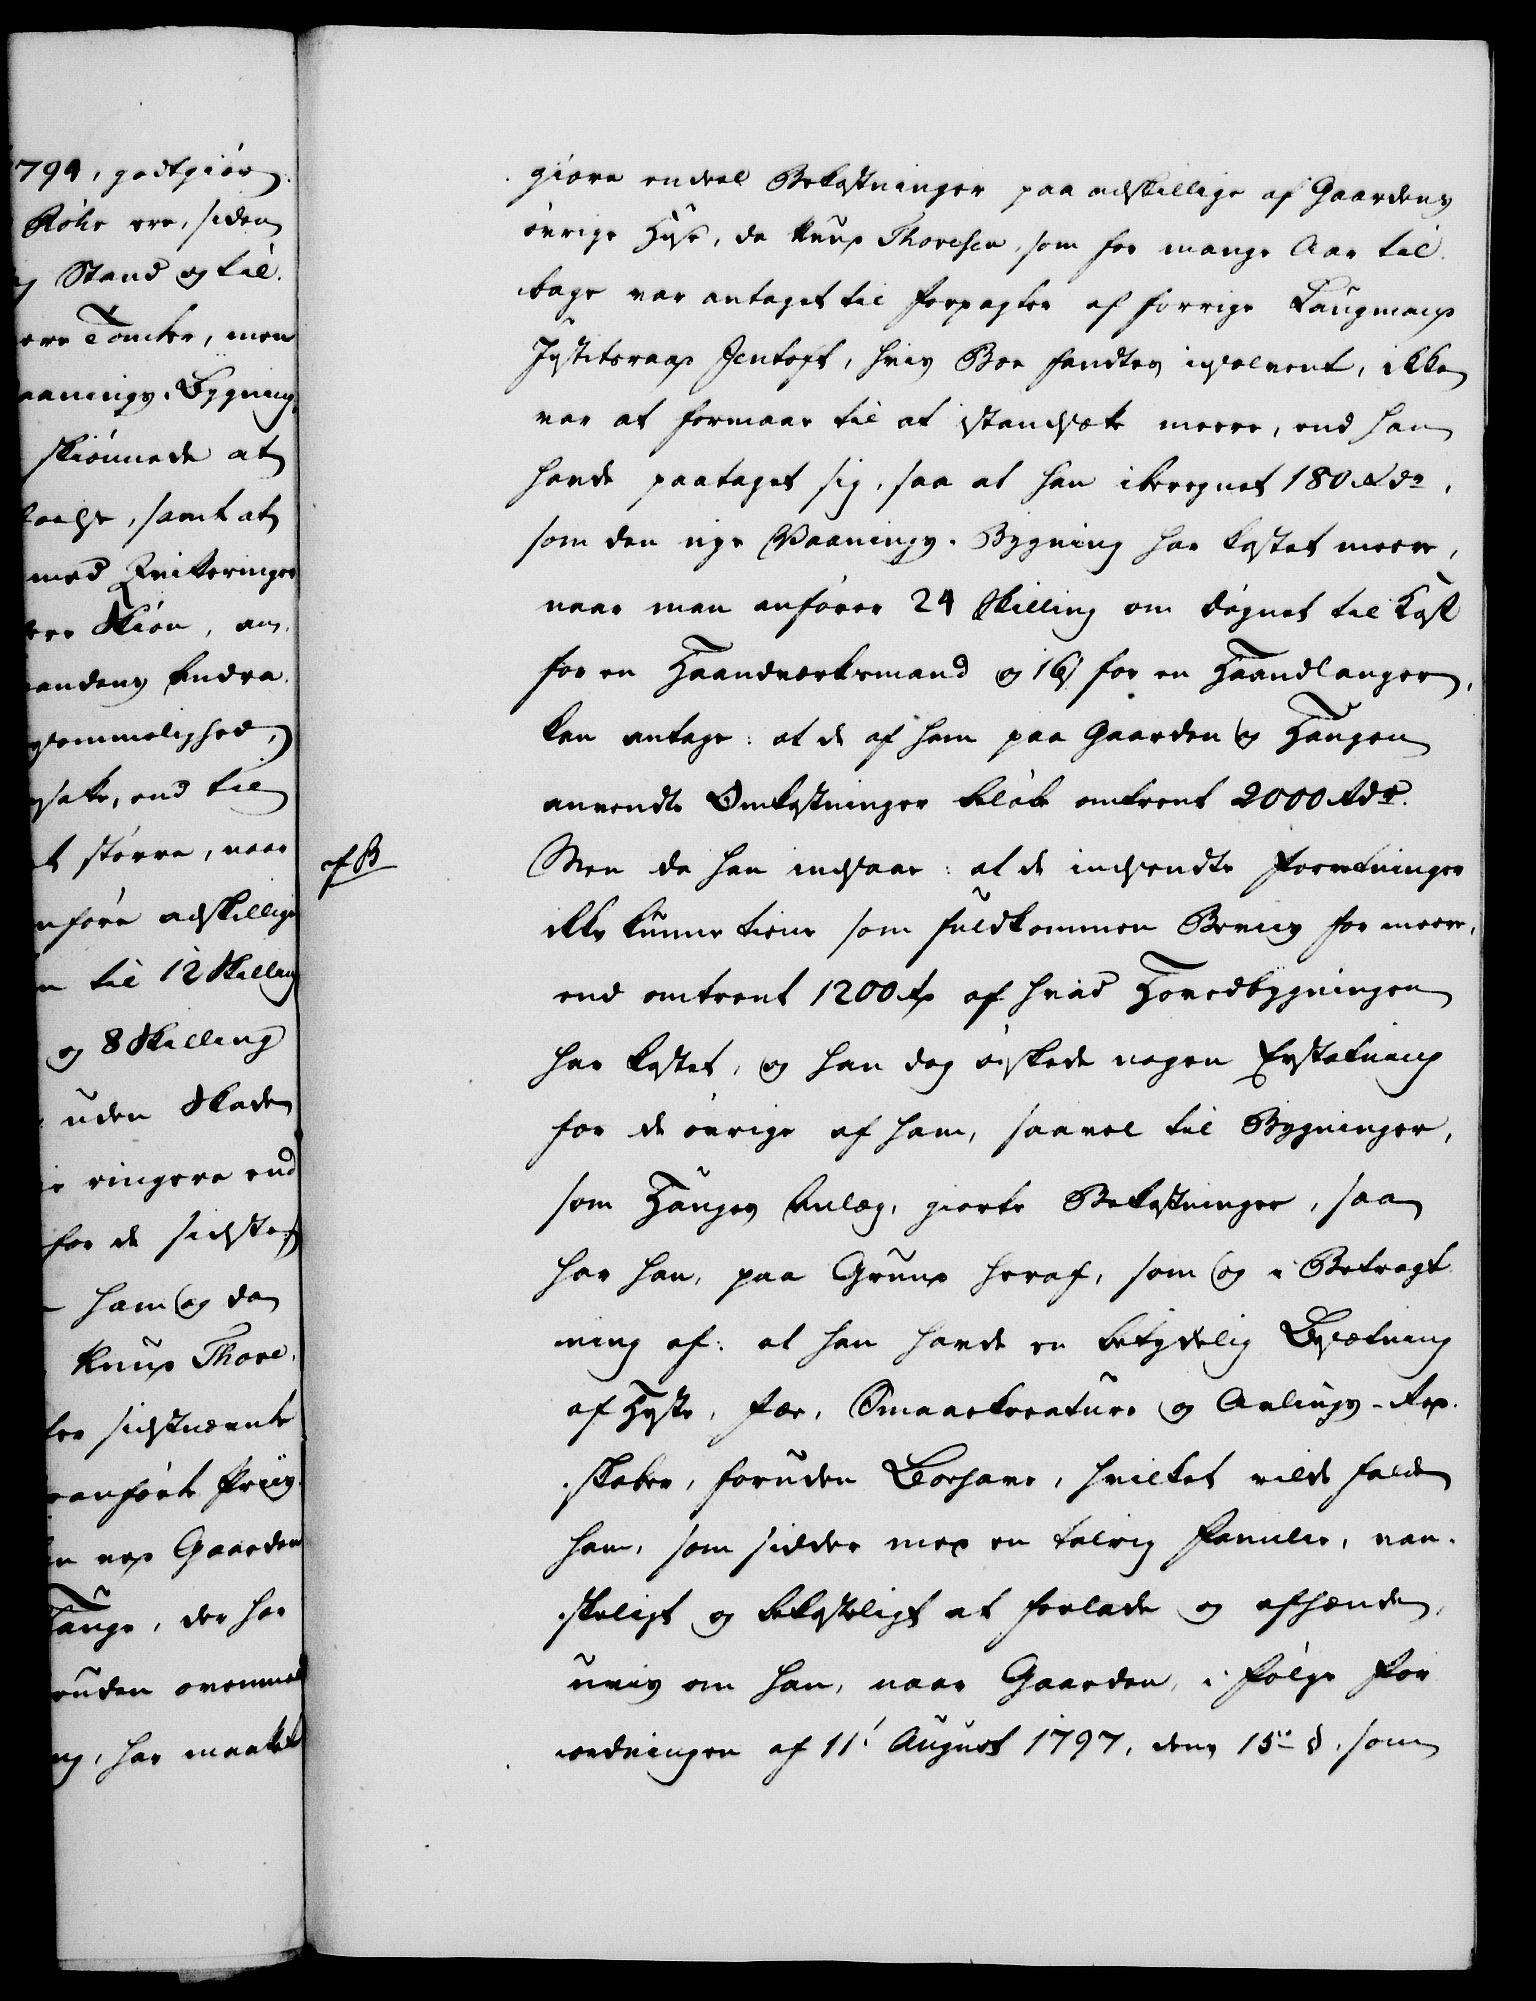 794, godtgiöre
Röke ere, siden
Stand og til
ere Tomter, men
aanings-Bygning
skiönnede at
samt at
med Qviteringer
Skiön, an
andens Andra
gsommelighed,
end til
större, naar
nföre adskillige
til 12 Skilling
og 8 Skilling
uden Skade
ringere end
for de sidste
ham og da
Knud Thore
sidstnævnte
anförte Priis
ved Gaarden
Hauge, der har
uden ovenmeld
ng, har maattet
giöre endeel Bekostninger paa adskillige af Gaardens
övrige Huse, da Knud Thoresen, som for mange Aar til
bage var antaget til Forpagter af forrige Laugmand
Justitsraad Jentoft, hvis Boe fandtes insolvent, ikke
var at formaae til at istandsætte meere, end han
havde paataget sig, saa at han iberegnet 180 Rdr,
som den nye Vaanings-Bygning har kostet meere,
naar man anförer 24 Skilling om Dögnet til Kost
for en Haandværksmand og 16 s for en Haandlanger,
kan antage: at de af ham paa Gaarden og Haugen
anvendte Omkostninger belöbe omtrent 2000 Rdr.
Men da han indsaae: at de indsendte Forretninger
ikke kunne tiene som fuldkommen Beviis for meere,
end omtrent 1200 Rd af hvad Hovedbygningen
har kostet, og han dog önskede nogen Erstatning
for de övrige af ham, saavel til Bygninger,
som Hauges Anlæg, giorte Bekostninger, saa
har han, paa Grund heraf, som og i Betragt
ning af: at han havde en betydelig Besætning
af Heste, Fæe, Smaaekreature og Avlings-Red
skaber, foruden Boehave, hvilket vilde falde
ham, som sidder med en talrig Familie, van
skeligt og bekosteligt at forlade og afhænde,
uvis om han, naar Gaarden, i Fölge For
ordningen af 11' August 1797, dens 15de §. som